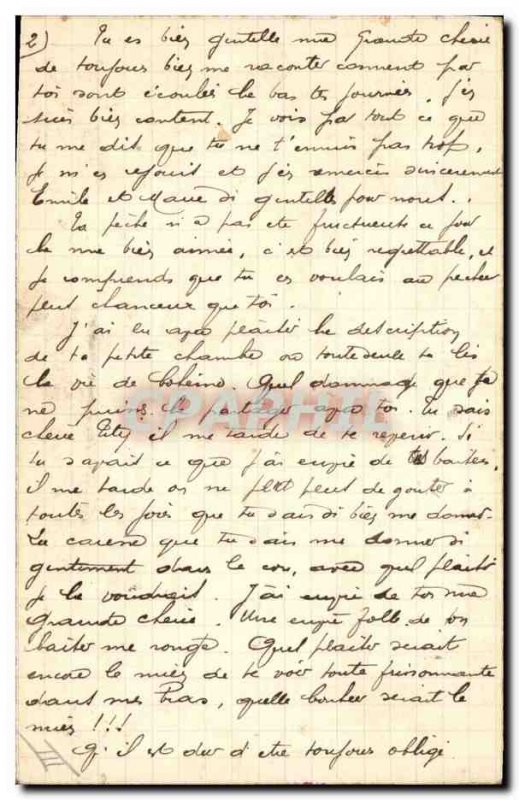 2) Tu es bien gentille ma Grande cherie
de toujours bien me raconter comment par
toi sont écoulés la bas tes journées. J'en
suis bien content. Je vois par tout ce que
tu me dit que tu ne t'ennuis pas trop,
je m'en rejouit et j'en remercie sincerement
Emile et Marie si gentille pour nous..
Ta pêche n'a pas ete fructueuse ce jour
la ma bien aimée, c'est bien regrettable, et
je comprends que tu en voulais au pecheur
peut chanceux que toi.
J'ai lu avec plaisir la description
de ta petite chambre ou toute seule tu lis
la vie de bohème. Quel dommage que je
ne puisse la partager avec toi. Tu sais
chère Tity il me tarde de te revenir. Si
tu savait ce que j'ai envie de tes baisers,
il me tarde on ne peut peut de gouter à
toutes les joies que tu sais si bien me donner.
La caresse que tu sais me donner si
gentiment dans le cou, avec quel plaisir
je la voudrait. J'ai envie de toi ma
grande cherie. Une envie folle de ton
baiser me ronge. Quel plaisir serait
encore le mien de te voir toute frissonnante
dans mes bras, quelle bonheur serait le
mien !!!
Qu'il est dur d'etre toujours obligé
CPAPHIL